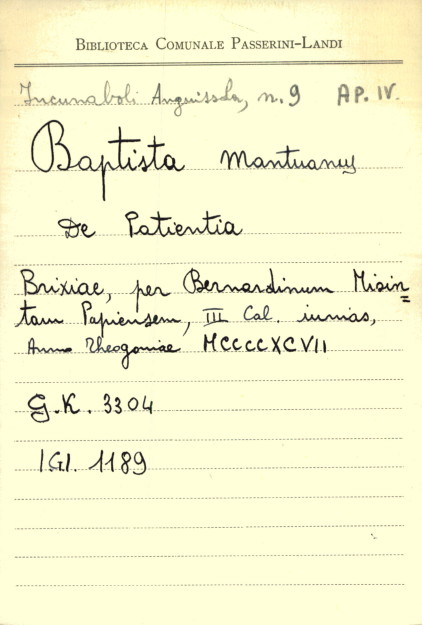 BIBLIOTECA COMUNALE PASSERINI-LANDI
Incunaboli Anguissola, n. 9 AP. IV.
Baptista Mantuanus
De Patientia
Brixiae, per Bernardinum Misin=
tam Papiensem, III Cal. iunias,
Anno Theogoniae MCCCCXCVII
G.K. 3304
IGI. 1189